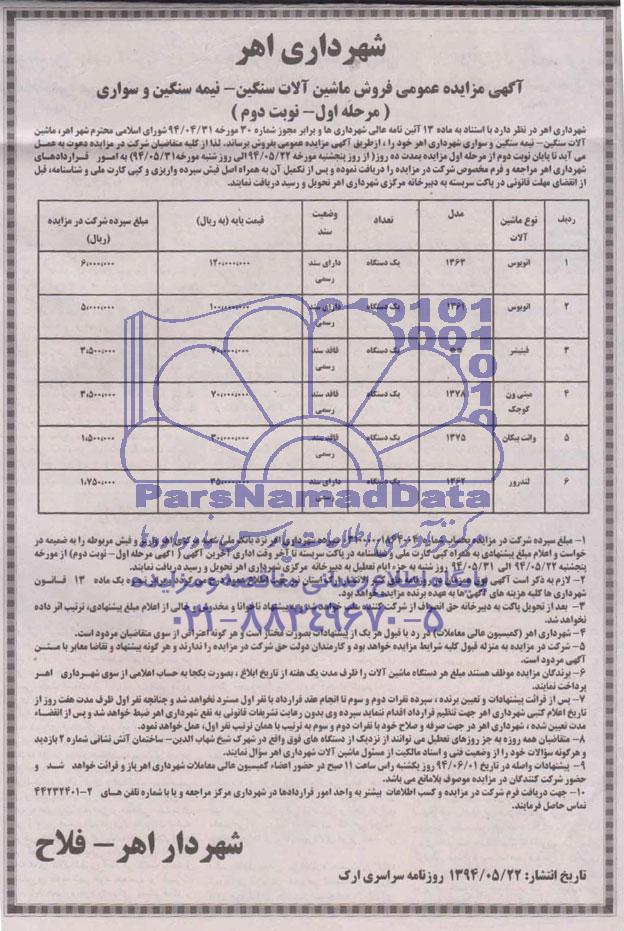 شهرداری اهر
آگهی مزایده عمومی فروش ماشین آلات سنگین- نیمه سنگین و سواری
( مرحله اول- نوبت دوم )
شهرداری اهر در نظر دارد با استناد به ماده ۱۳ آئین نامه عالی شهرداری ها و برابر مجوز شماره ۳۰ مورخه ۹۴/۰۴/۳۱ شورای اسلامی محترم شهر اهر، ماشین
آلات سنگین- نیمه سنگین و سواری شهرداری اهر خود را ، ازطریق آگهی مزایده عمومی بفروش برساند. لذا از کلیه متقاضیان شرکت در مزایده دعوت به عمل
می آید تا پایان نوبت دوم از مرحله اول مزایده بمدت ده روز( از روز پنجشنبه مورخه ۹۴/۰۵/۲۲ الی روز شنبه مورخه ۹۴/۰۵/۳۱) به امور قراردادهای
شهرداری اهر مراجعه و فرم مخصوص شرکت در مزایده را دریافت نموده و پس از تکمیل آن به همراه اصل فیش سپرده واریزی و کپی کارت ملی و شناسنامه، قبل
از انقضای مهلت قانونی در پاکت سربسته به دبیرخانه مرکزی شهرداری اهر تحویل و رسید دریافت نمایند.
ردیف نوع ماشین آلات مدل تعداد وضعیت سند قیمت پایه (به ریال) مبلغ سپرده شرکت در مزایده (ریال)
۱ اتوبوس ۱۳۶۳ یک دستگاه دارای سند رسمی ۱۲۰،۰۰۰،۰۰۰ ۶،۰۰۰،۰۰۰
۲ اتوبوس ۱۳۶۱ یک دستگاه دارای سند رسمی ۱۰۰،۰۰۰،۰۰۰ ۵،۰۰۰،۰۰۰
۳ فینیشر یک دستگاه فاقد سند رسمی ۷۰،۰۰۰،۰۰۰ ۳،۵۰۰،۰۰۰
۴ مینی ون کوچک ۱۳۷۸ یک دستگاه فاقد سند رسمی ۷۰،۰۰۰،۰۰۰ ۳،۵۰۰،۰۰۰
۵ وانت پیکان ۱۳۷۵ یک دستگاه فاقد سند رسمی ۳۰،۰۰۰،۰۰۰ ۱،۵۰۰،۰۰۰
۶ لندرور ۱۳۶۲ یک دستگاه دارای سند رسمی ۳۵،۰۰۰،۰۰۰ ۱،۷۵۰،۰۰۰
ParsNamadData
۱- مبلغ سپرده شرکت در مزایده بحساب شماره سپرده شهرداری اهر نزد بانک ملی شعبه مرکزی اهر واریز و فیش مربوطه را به ضمیمه در
خواست و اعلام مبلغ پیشنهادی به همراه کپی کارت ملی و شناسنامه در پاکت سربسته تا آخر وقت اداری آخرین آگهی ( آگهی مرحله اول- نوبت دوم) از مورخه
پنجشنبه ۹۴/۰۵/۲۲ الی ۹۴/۰۵/۳۱ روز شنبه به جزء ایام تعطیل به دبیرخانه مرکزی شهرداری اهر تحویل و رسید دریافت نمایند.
۲- لازم به ذکر است آگهی ماده ۱۳ قانون
شهرداری ها کلیه هزینه های آگهی ها به عهده برنده مزایده خواهد بود.
۳- بعد از تحویل پاکت به دبیرخانه حق انصراف از شرکت کننده سلب خواهد شد و به پیشنهاد ناخوانا و مخدوش و خالی از اعلام مبلغ پیشنهادی، ترتیب اثر داده
نخواهد شد.
پایگاه اطلاع رسانی مناقصه و مزایده
۰۲۱-۸۸۳۴۹۶۷۰-۵
۴- شهرداری اهر (کمیسیون عالی معاملات) در رد یا قبول هر یک از پیشنهادات بصورت مختار است و هر گونه اعتراض از سوی متقاضیان مردود است.
۵- شرکت در مزایده به منزله قبول کلیه شرایط مزایده خواهد بود و کارمندان دولت حق شرکت در مزایده را ندارند و هر گونه پیشنهاد و تقاضا مغایر با متن
آگهی مردود است.
۶- برندگان مزایده موظف هستند مبلغ هر دستگاه ماشین آلات را ظرف مدت یک هفته از تاریخ ابلاغ ، بصورت یکجا به حساب اعلامی از سوی شهرداری اهر
پرداخت نمایند.
۷- پس از قرائت پیشنهادات و تعیین برنده ، سپرده نفرات دوم و سوم تا انجام عقد قرارداد با نفر اول مسترد نخواهد شد و چنانچه نفر اول ظرف مدت هفت روز از
تاریخ اعلام کتبی شهرداری اهر جهت تنظیم قرارداد اقدام ننماید سپرده وی بدون رعایت تشریفات قانونی به نفع شهرداری اهر ضبط خواهد شد و پس از انقضاء
مدت تعیین شده ، شهرداری اهر در جهت صرفه و صلاح خود با نفرات دوم و سوم به ترتیب با همان ترتیب نفر اول، عمل خواهد نمود.
۸- متقاضیان همه روزه به جز روزهای تعطیل می توانند از نزدیک از دستگاه های فوق واقع در شهرک شیخ شهاب الدین- ساختمان آتش نشانی شماره ۲ بازدید
و هرگونه سؤالات خود را از وضعیت فنی و اسناد مالکیت از مسئول ماشین آلات شهرداری اهر سؤال نمایند.
۹- پیشنهادات واصله در تاریخ ۹۴/۰۶/۰۱ روز یکشنبه راس ساعت ۱۱ صبح در حضور اعضاء کمیسیون عالی معاملات شهرداری اهر باز و قرائت خواهد شد و
حضور شرکت کنندگان در مزایده موصوف بلامانع می باشد.
۱۰- جهت دریافت فرم شرکت در مزایده و کسب اطلاعات بیشتر به واحد امور قراردادها در شهرداری مرکز مراجعه و یا با شماره تلفن های ۲-۴۴۲۳۲۴۰۱
تماس حاصل فرمایند.
شهردار اهر- فلاح
تاریخ انتشار: ۱۳۹۴/۰۵/۲۲ روزنامه سراسری ارک